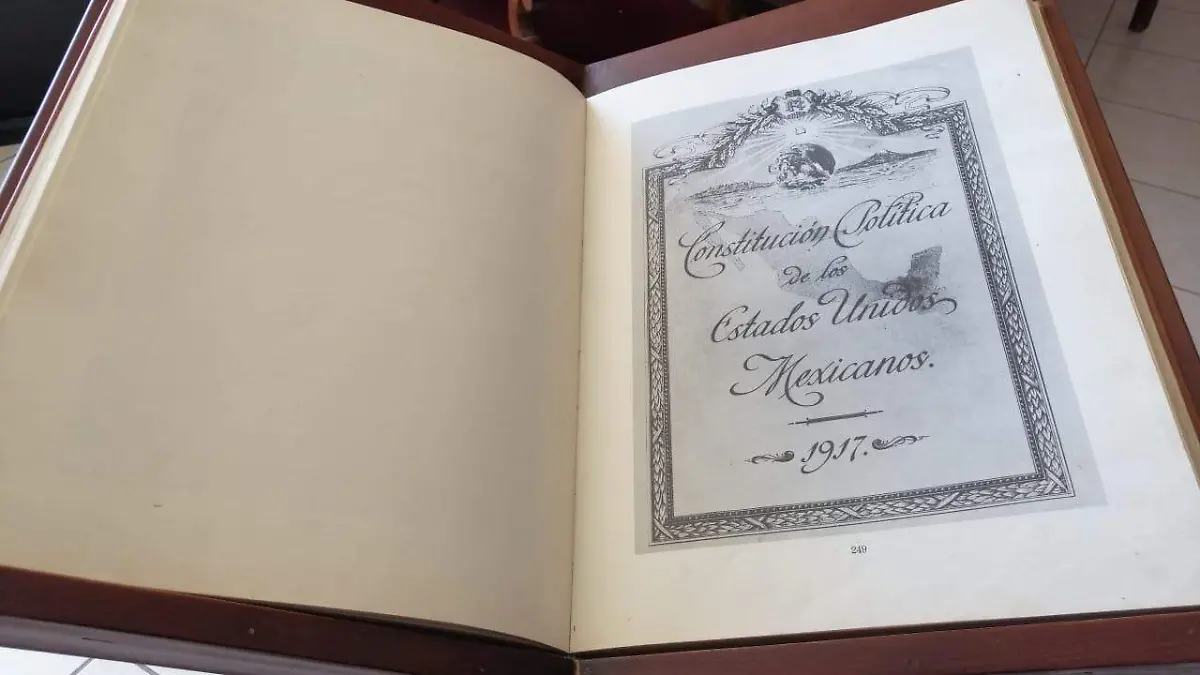 Constitución Política
de los
Estados Unidos
Mexicanos.
1917.
249